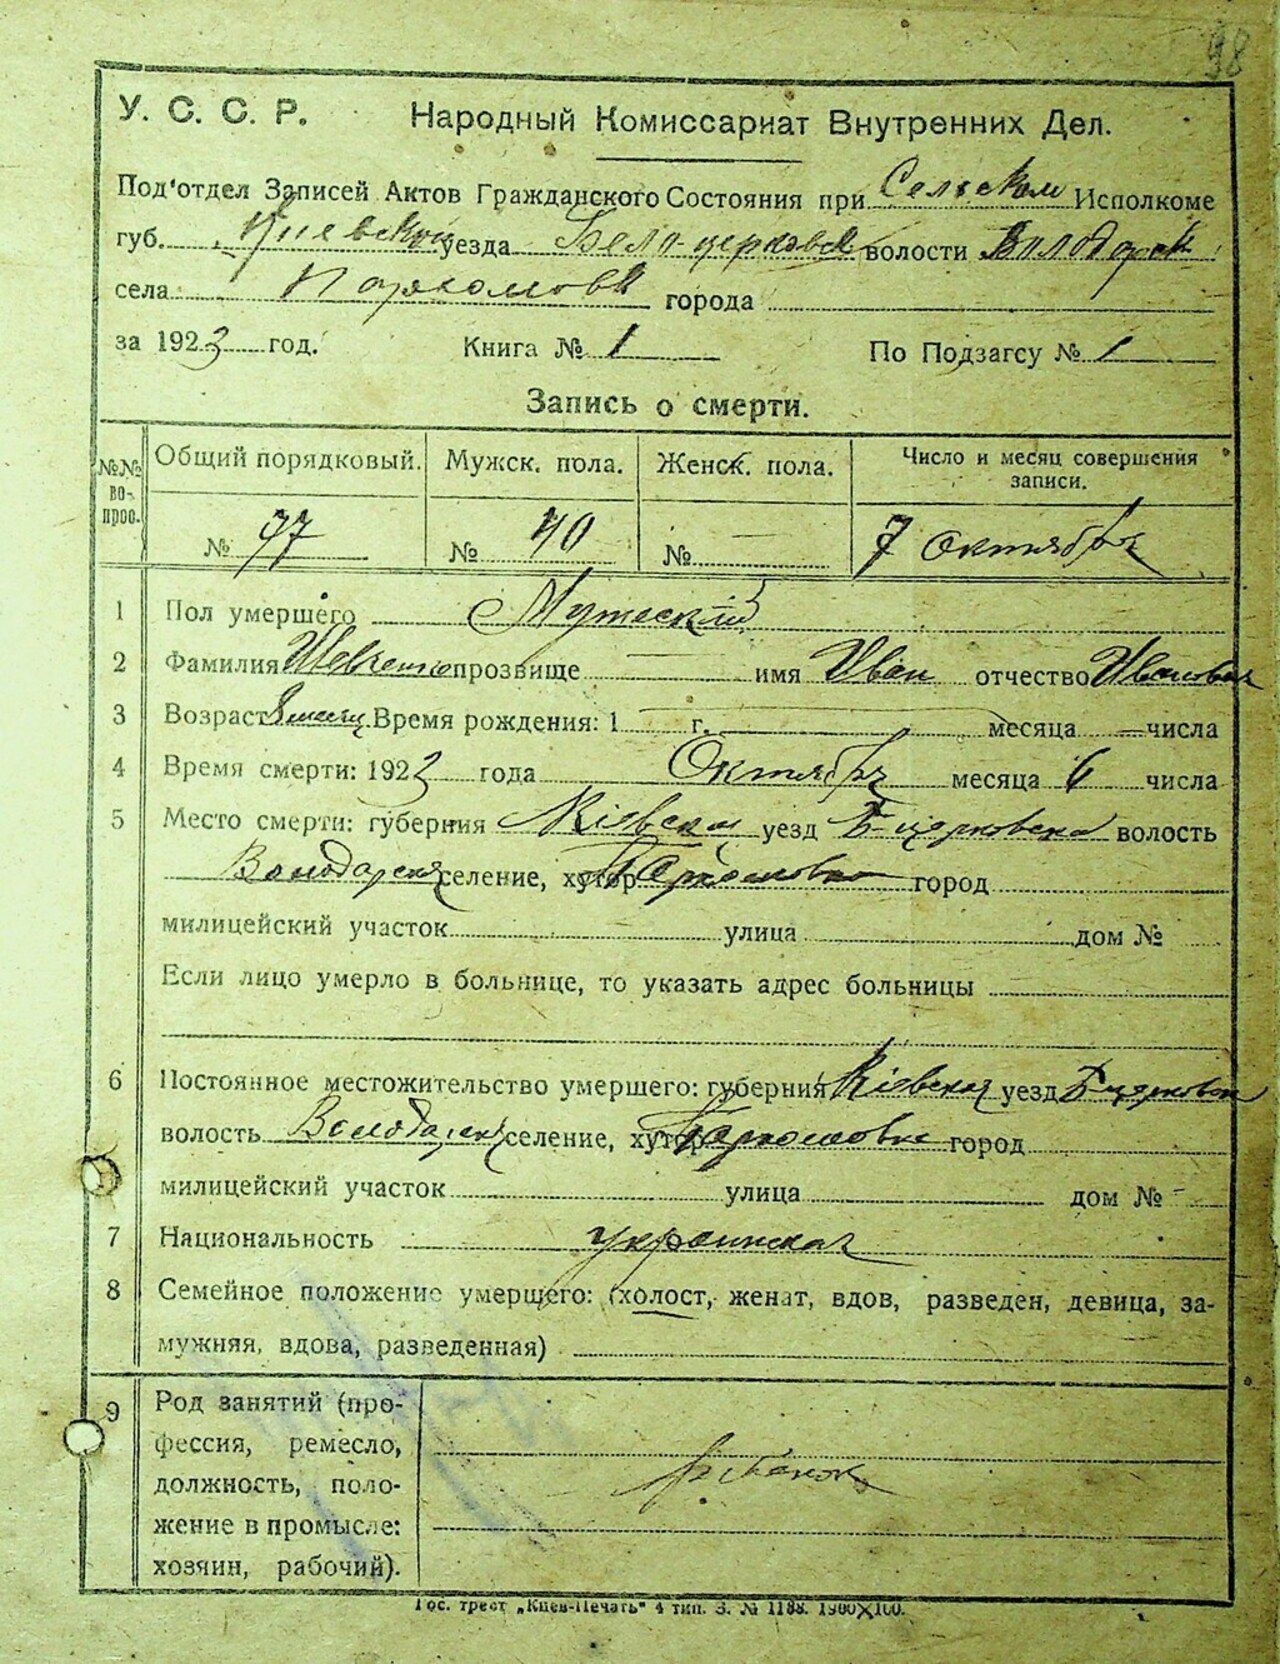 98
У. С. С. Р. Народный Комиссариат Внутренних Дел.
Под'отдел Записей Актов Гражданского Состояния при Сельском Исполкоме
губ. Киевской уезда Бело-церковск волости Володарск
села Пархомовки города
за 1923 год. Книга № 1 По Подзагсу № 1
Запись о смерти.
№№ вопрос. Общий порядковый. Мужск. пола. Женск. пола. Число и месяц совершения записи.
№ 97 № 40 № — 7 Октября
1 Пол умершего Мужеский
2 Фамилия Шевченко прозвище — имя Иван отчество Иванович
3 Возраст месяц. Время рождения: 1 г. месяца — числа
4 Время смерти: 1923 года Октября месяца 6 числа
5 Место смерти: губерния Кіевская уезд Б-церковская волость
Володарская селение, хутор Пархомовка город
милицейский участок улица дом №
Если лицо умерло в больнице, то указать адрес больницы
6 Постоянное местожительство умершего: губерния Кіевская уезд Б-церковск
волость Володарская селение, хутор Пархомовка город
милицейский участок улица дом № -
7 Национальность украинская
8 Семейное положение умершего: (холост, женат, вдов, разведен, девица, за-
мужняя, вдова, разведенная)
9 Род занятий (про-
фессия, ремесло,
должность, поло-
жение в промысле:
хозяин, рабочий).
ребенок
Гос. трест „Киев-Печать" 4 тип. З. № 1188. 1900X100.